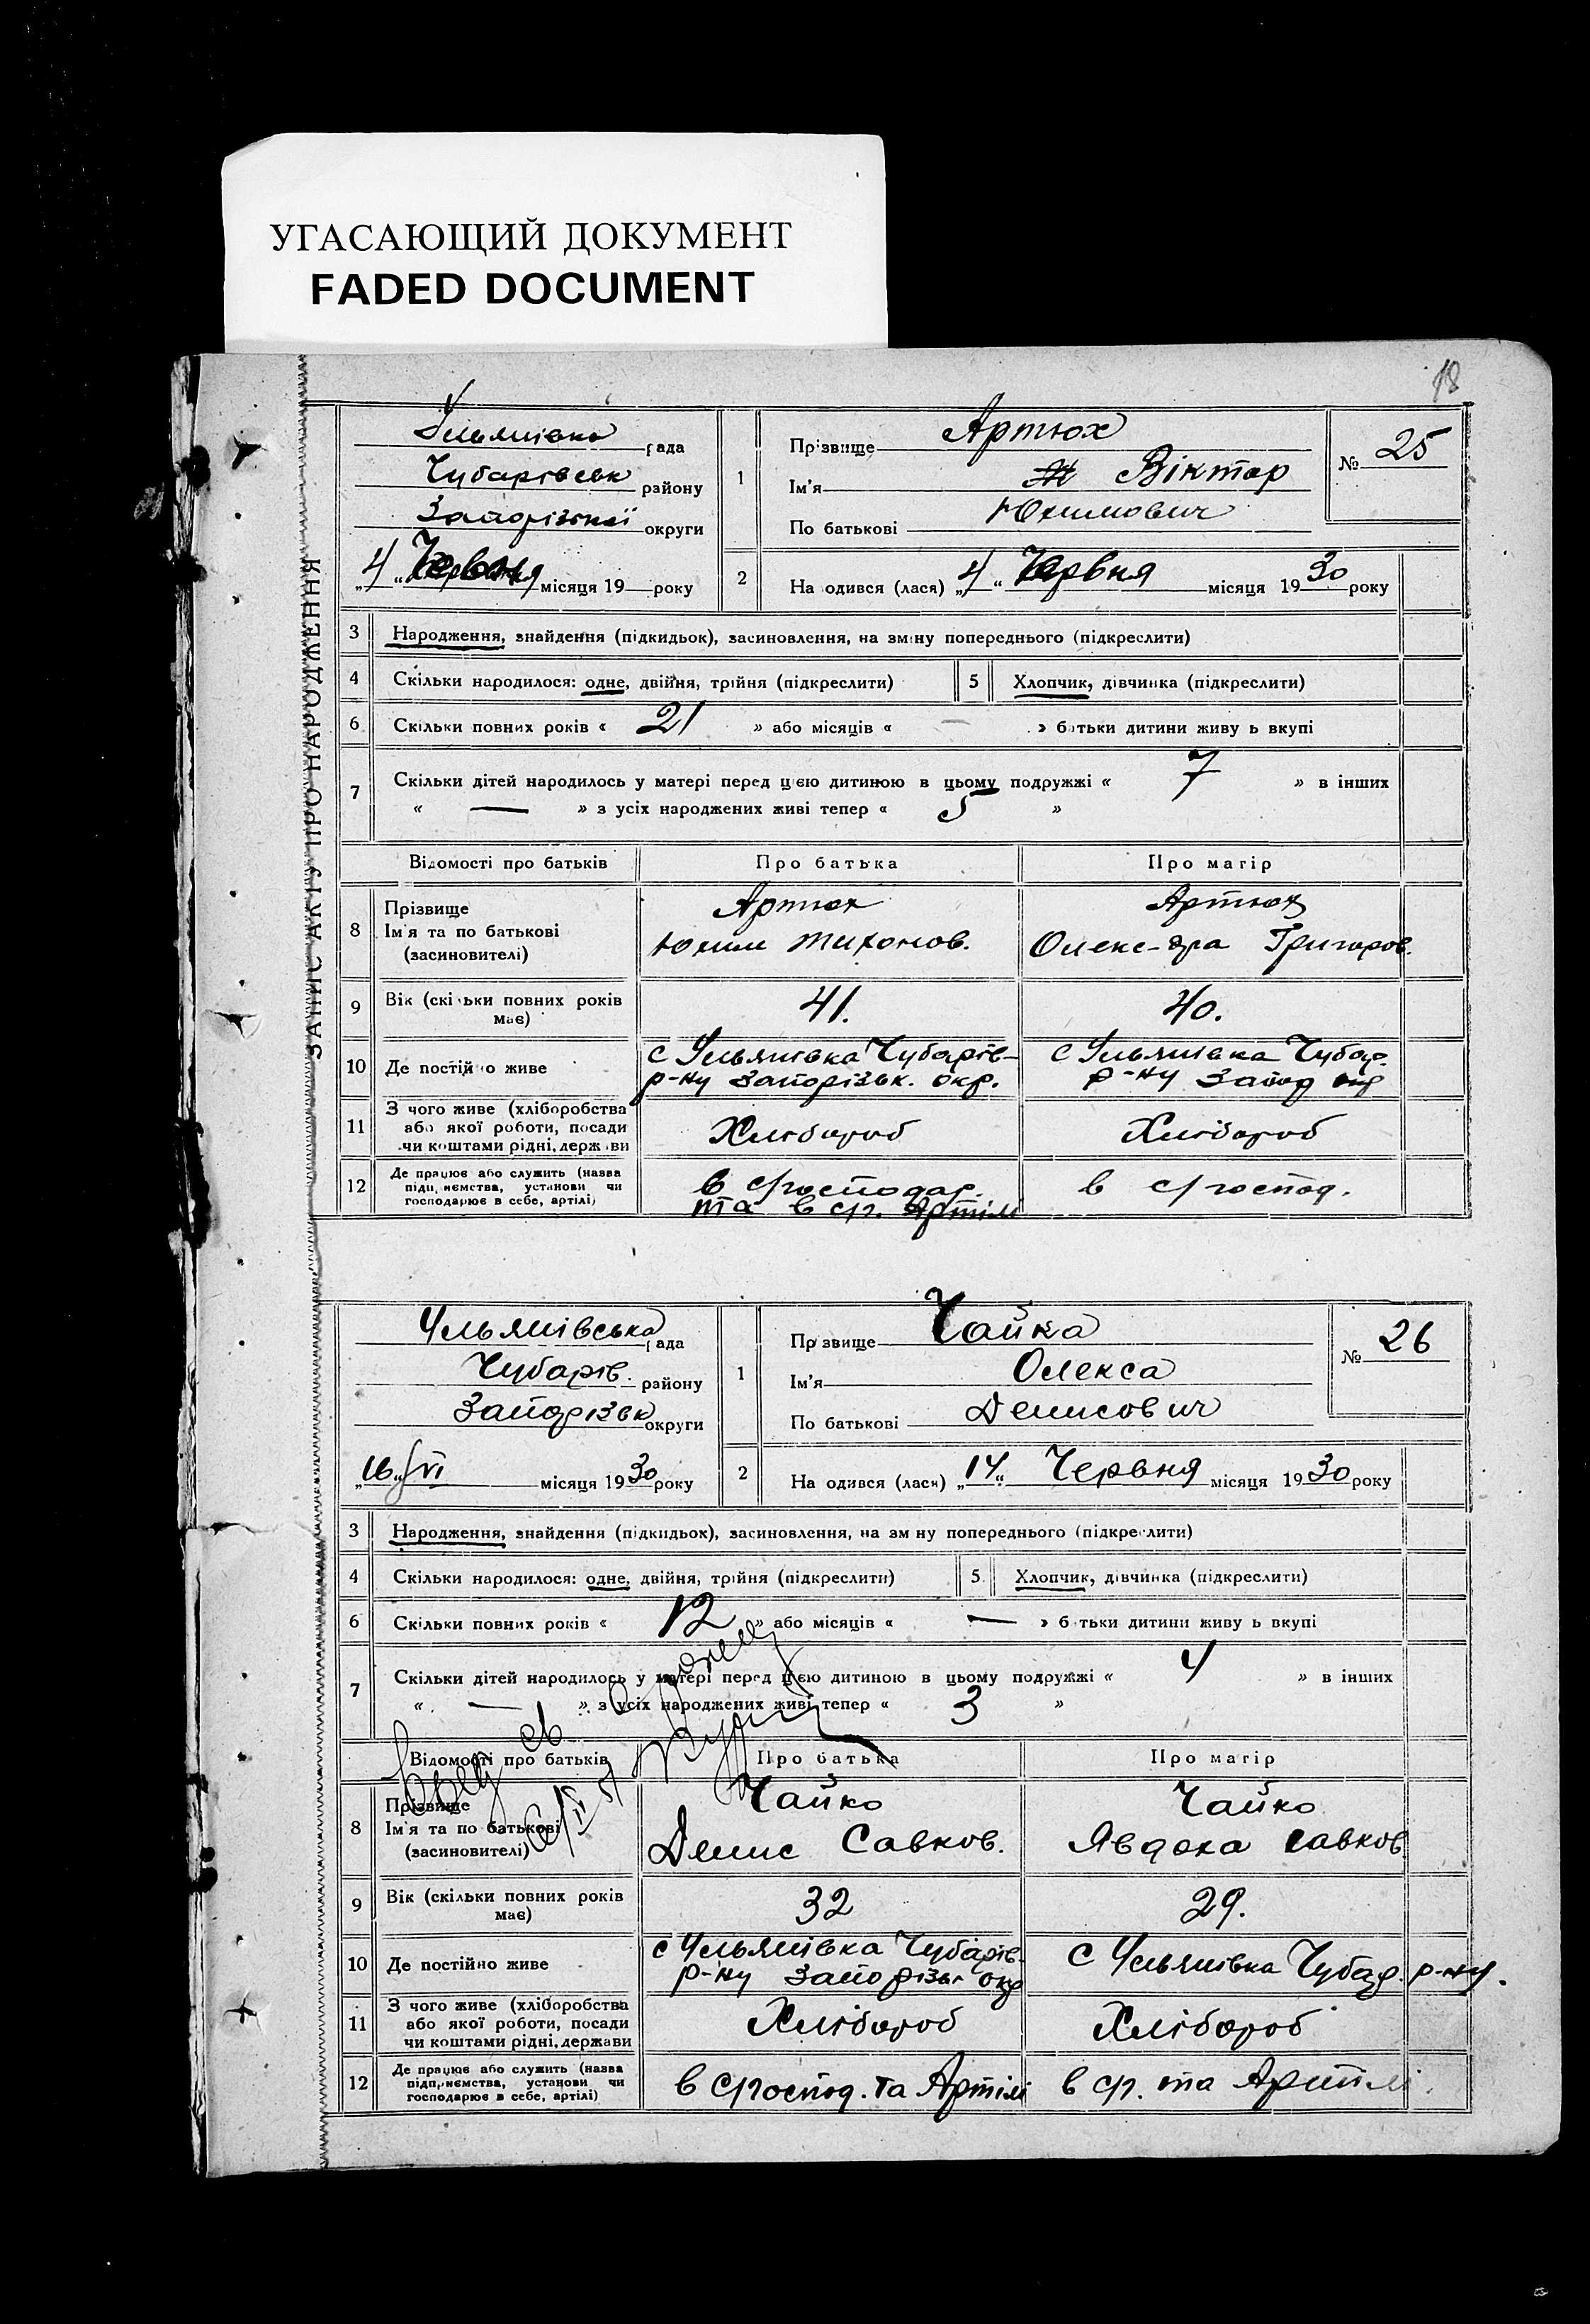 УГАСАЮЩИЙ ДОКУМЕНТ
FADED DOCUMENT
18
ЗАПИС АКТУ ПРО НАРОДЖЕННЯ
Ульянівка рада
Чубарівськ району
Запорізької округи
„4“ Червня місяця 19 року
1
Прізвище Артюх
Ім'я Віктор
По батькові Юхимович
№ 25
2
Народився (лася) „4“ Червня місяця 1930 року
3 Народження, знайдення (підкидьок), засиновлення, на зміну попереднього (підкреслити)
4 Скільки народилося: одне, двійня, трійня (підкреслити)
5 Хлопчик, дівчинка (підкреслити)
6 Скільки повних років « 21 » або місяців « — » батьки дитини живуть вкупі
7 Скільки дітей народилось у матері перед цією дитиною в цьому подружжі « 7 » в інших
« — » з усіх народжених живі тепер « 5 »
Відомості про батьків Про батька Про матір
8 Прізвище
Ім'я та по батькові
(засиновителі)
Артюх
Юхим Тихонов.
Артюх
Олекс-дра Григоров.
9 Вік (скільки повних років
має)
41.
40.
10 Де постійно живе
с Ульянівка Чубарів-
р-ну Запорізьк. окр.
с Ульянівка Чубар.
р-ну Запор окр
11 З чого живе (хліборобства
або якої роботи, посади
чи коштами рідні, держави
Хлібороб
Хлібороб
12 Де працює або служить (назва
підприємства, установи чи
господарює в себе, артілі)
в с/господар.
та в с/г. Артілі
в с/господ.
Ульянівська рада
Чубарів. району
Запорізьк округи
„16“ VI місяця 1930 року
1
Прізвище Чайка
Ім'я Олекса
По батькові Денисович
№ 26
2
Народився (лася) „14“ Червня місяця 1930 року
3 Народження, знайдення (підкидьок), засиновлення, на зміну попереднього (підкреслити)
4 Скільки народилося: одне, двійня, трійня (підкреслити)
5. Хлопчик, дівчинка (підкреслити)
6 Скільки повних років « 12 » або місяців « — » батьки дитини живуть вкупі
7 Скільки дітей народилось у матері перед цією дитиною в цьому подружжі « 4 » в інших
« — » з усіх народжених живі тепер « 3 »
Відомості про батьків Про батька Про матір
8 Прізвище
Ім'я та по батькові
(засиновителі)
Чайко
Денис Савков.
Чайко
Явдоха Савков
9 Вік (скільки повних років
має)
32
29.
10 Де постійно живе
с Ульянівка Чубарів-
р-ну Запорізьк окр
с Ульянівка Чубар. р-ну.
11 З чого живе (хліборобства
або якої роботи, посади
чи коштами рідні, держави
Хлібороб
Хлібороб
12 Де працює або служить (назва
підприємства, установи чи
господарює в себе, артілі)
в с/господ. та Артілі
в с/г. та Артілі.